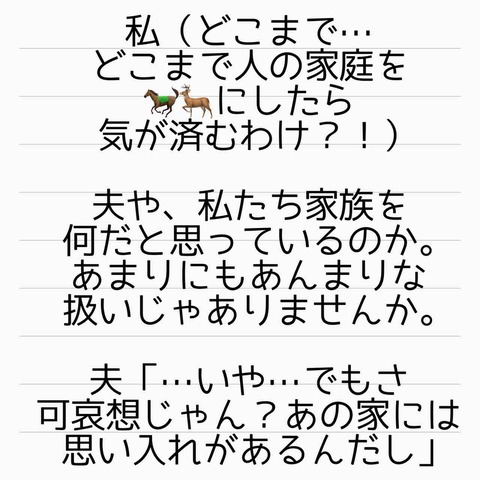 私（どこまで…
どこまで人の家庭を
🐎🦌にしたら
気が済むわけ？！）
夫や、私たち家族を
何だと思っているのか。
あまりにもあんまりな
扱いじゃありませんか。
夫「…いや…でもさ
可哀想じゃん？あの家には
思い入れがあるんだし」